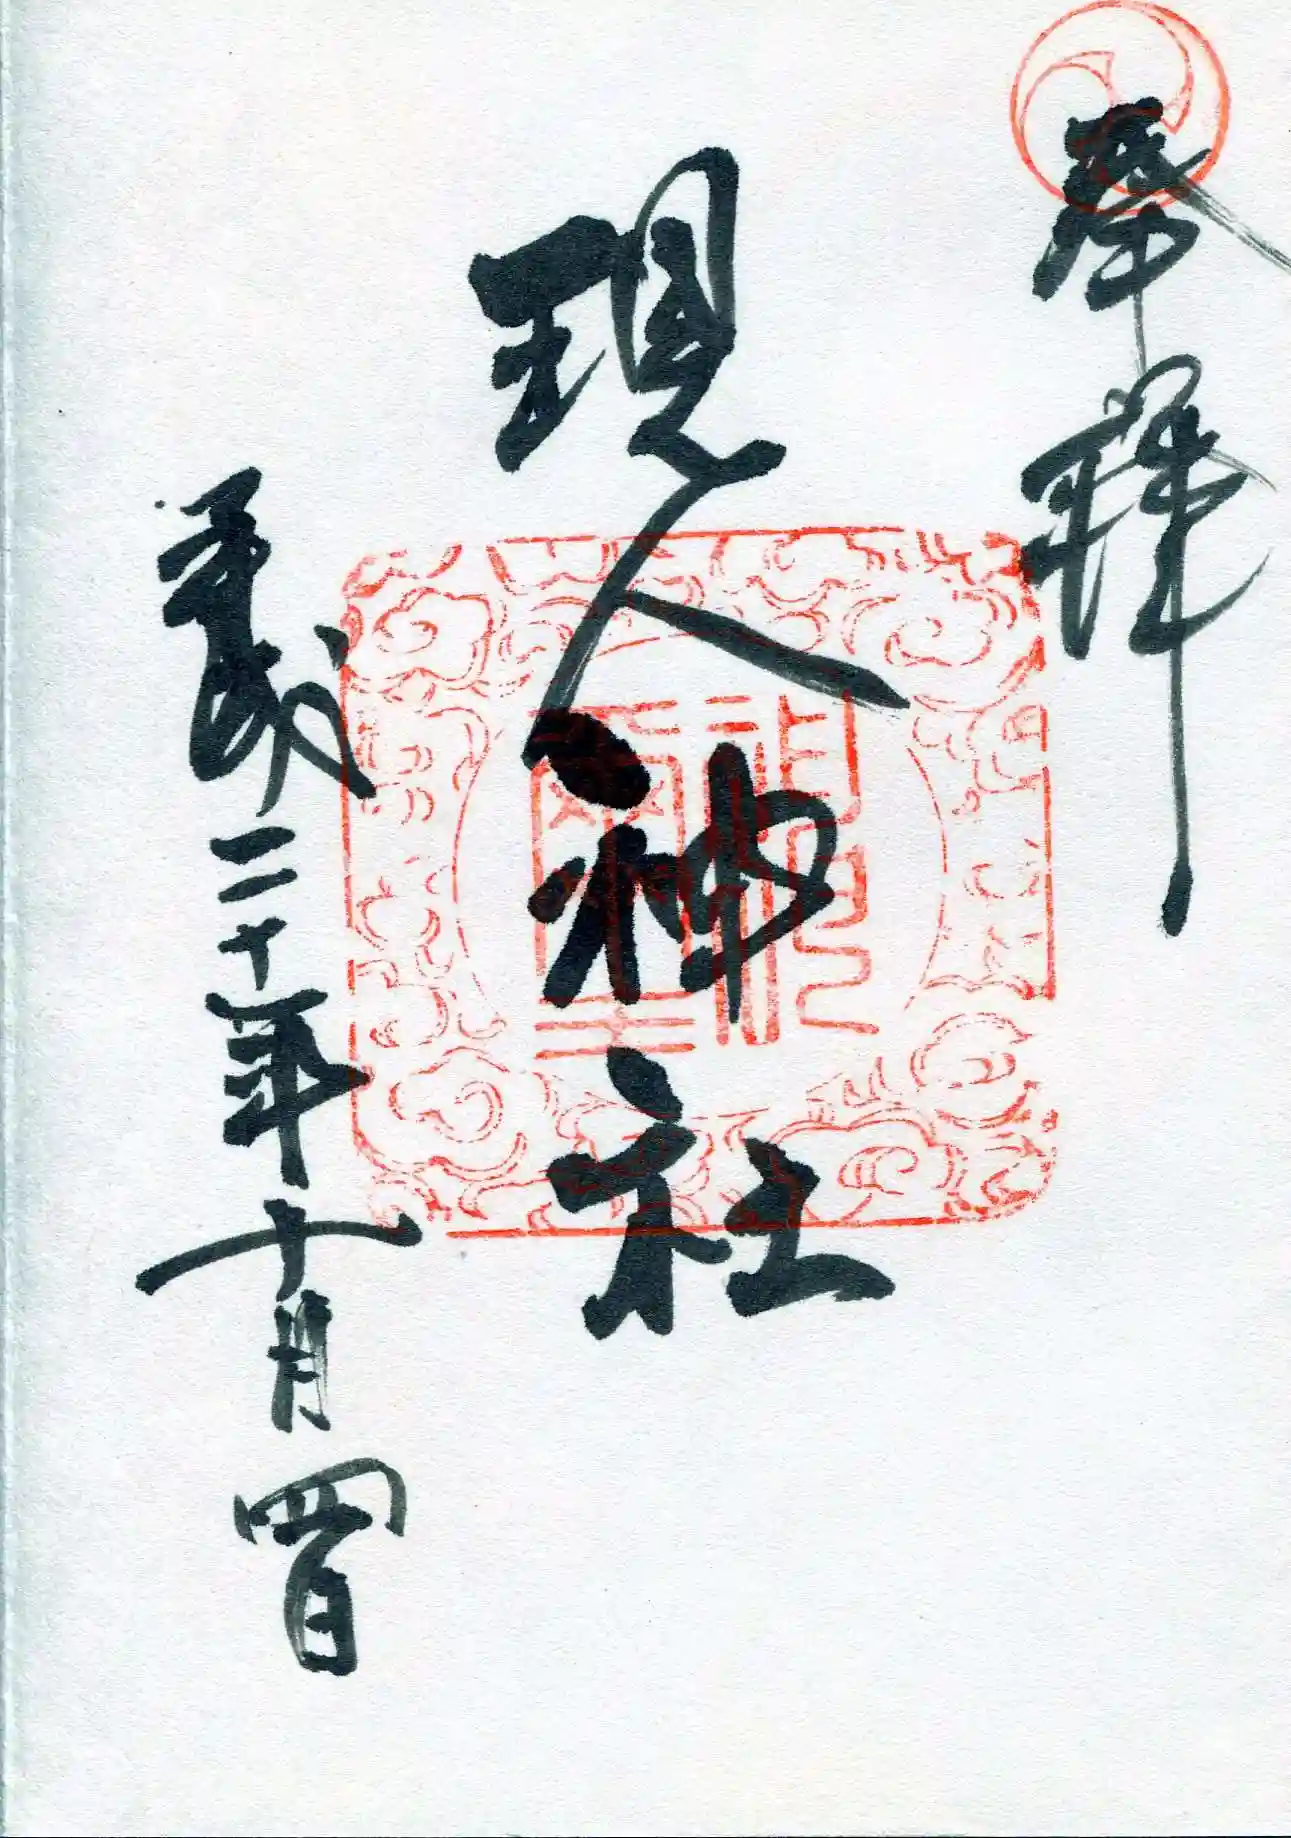 奉拝
現人神社
平成二十年十月四日